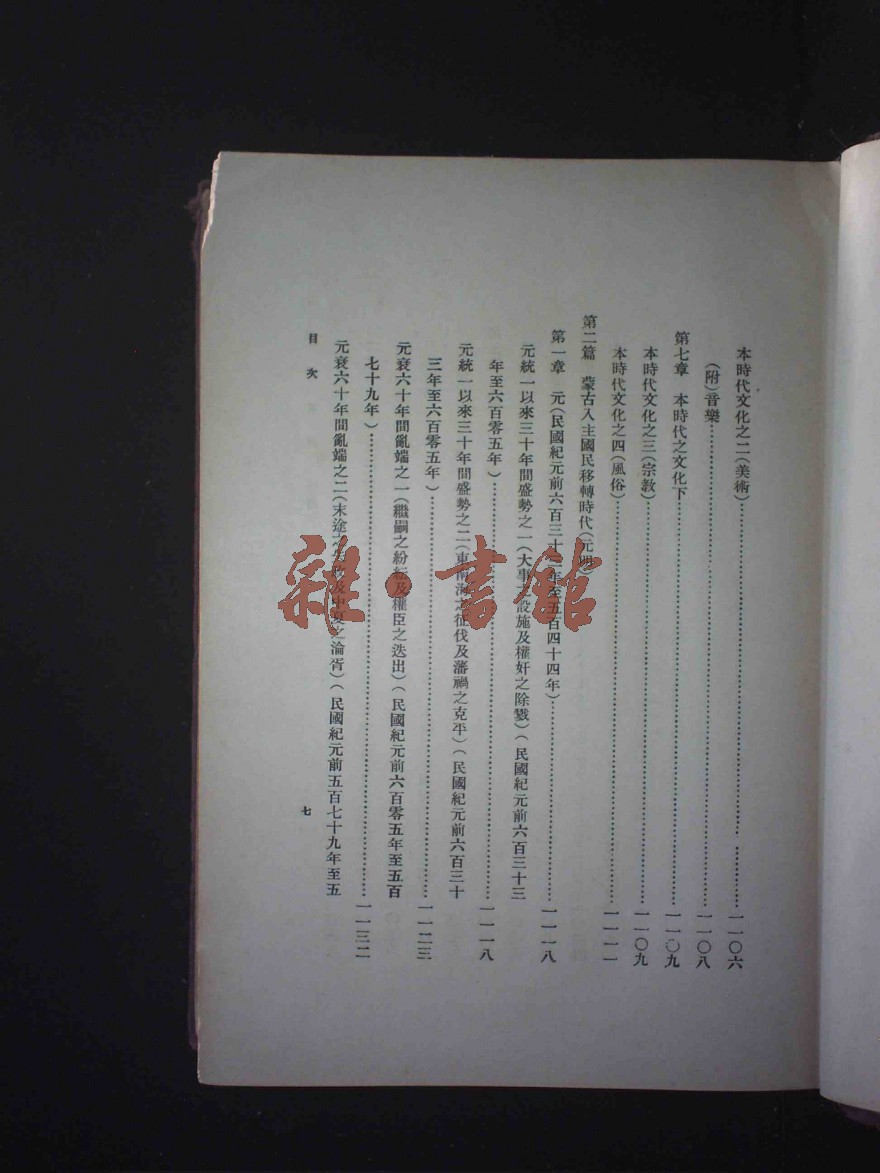 本時代文化之二(美術)…………一一〇六
(附)音樂…………一一〇八
第七章　本時代之文化下…………一一〇九
本時代文化之三(宗教)…………一一〇九
本時代文化之四(風俗)…………一一一一
第二篇　蒙古入主國民移轉時代(元明)
第一章　元(民國紀元前六百三十三年至五百四十四年)…………一一一八
元統一以來三十年間盛勢之一(大事之設施及權奸之除戮)(民國紀元前六百三十三
年至六百零五年)…………一一一八
元統一以來三十年間盛勢之二(東南海之征伐及藩禍之克平)(民國紀元前六百三十
三年至六百零五年)…………一一二三
元衰六十年間亂端之一(繼嗣之紛紜及權臣之迭出)(民國紀元前六百零五年至五百
七十九年)…………一一三二
元衰六十年間亂端之二(末途之失政及中夏之淪胥)(民國紀元前五百七十九年至五
目次
七
雜·書館